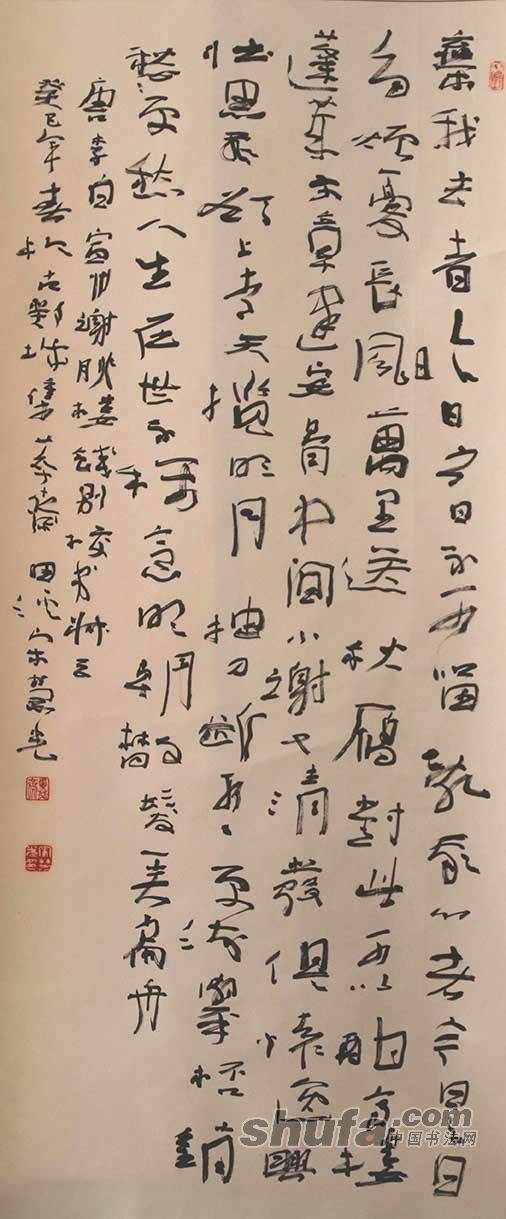 棄我去者昨日之日不可留亂我心者今日之日
多煩憂長風萬里送秋雁對此可以酣高樓
蓬萊文章建安骨中間小謝又清發俱懷逸興
壯思飛欲上青天攬明月抽刀斷水水更流舉杯銷
愁更愁人生在世不稱意明朝散髮弄扁舟
唐李白宣州謝朓樓餞別校書叔雲
癸巳年春於古
shufa.com
中国书法网